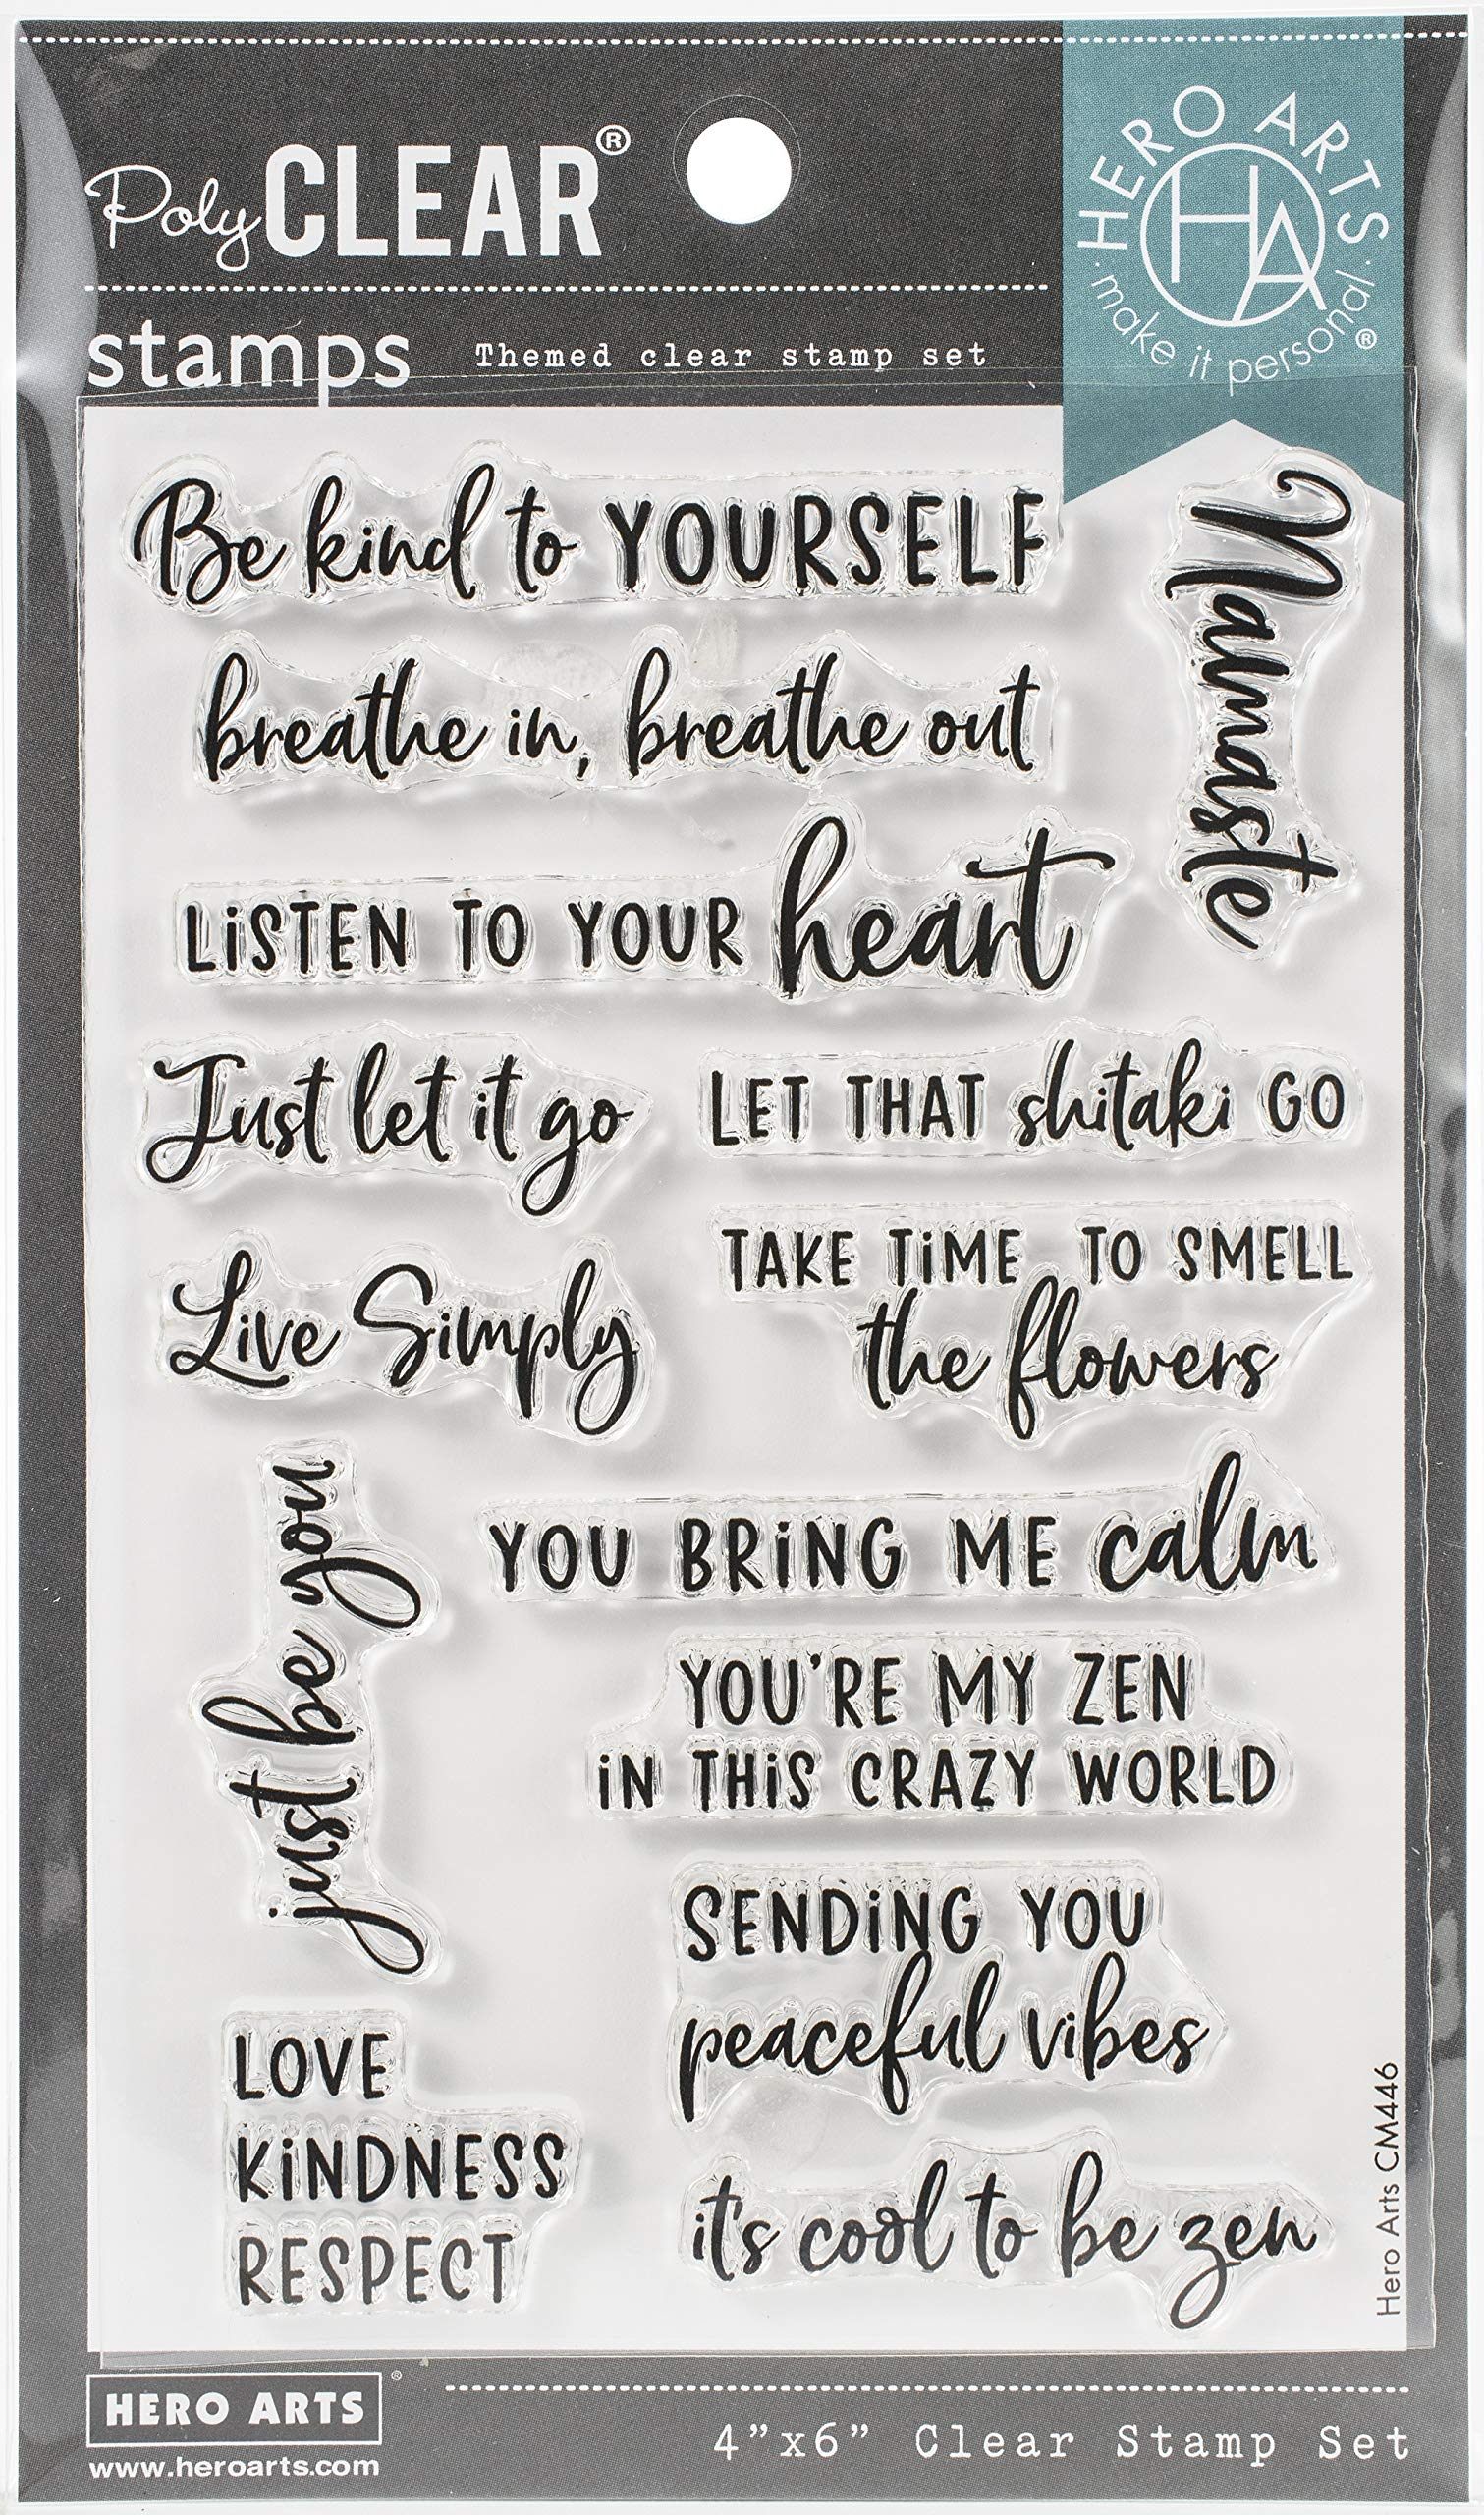 Poly CLEAR®
stamps
Themed clear stamp set
HERO ARTS
HA
· make it personal ·
®
Be kind to YOURSELF
Namaste
breathe in, breathe out
LiSTEN TO YOUR heart
Just let it go
LET THAT shitaki GO
Live Simply
TAKE TiME TO SMELL
the flowers
just be you
YOU BRiNG ME calm
YOU'RE MY ZEN
iN THiS CRAZY WORLD
SENDiNG YOU
peaceful vibes
LOVE
KiNDNESS
RESPECT
it's cool to be zen
Hero Arts CM446
HERO ARTS®
www.heroarts.com
4”x6” Clear Stamp Set